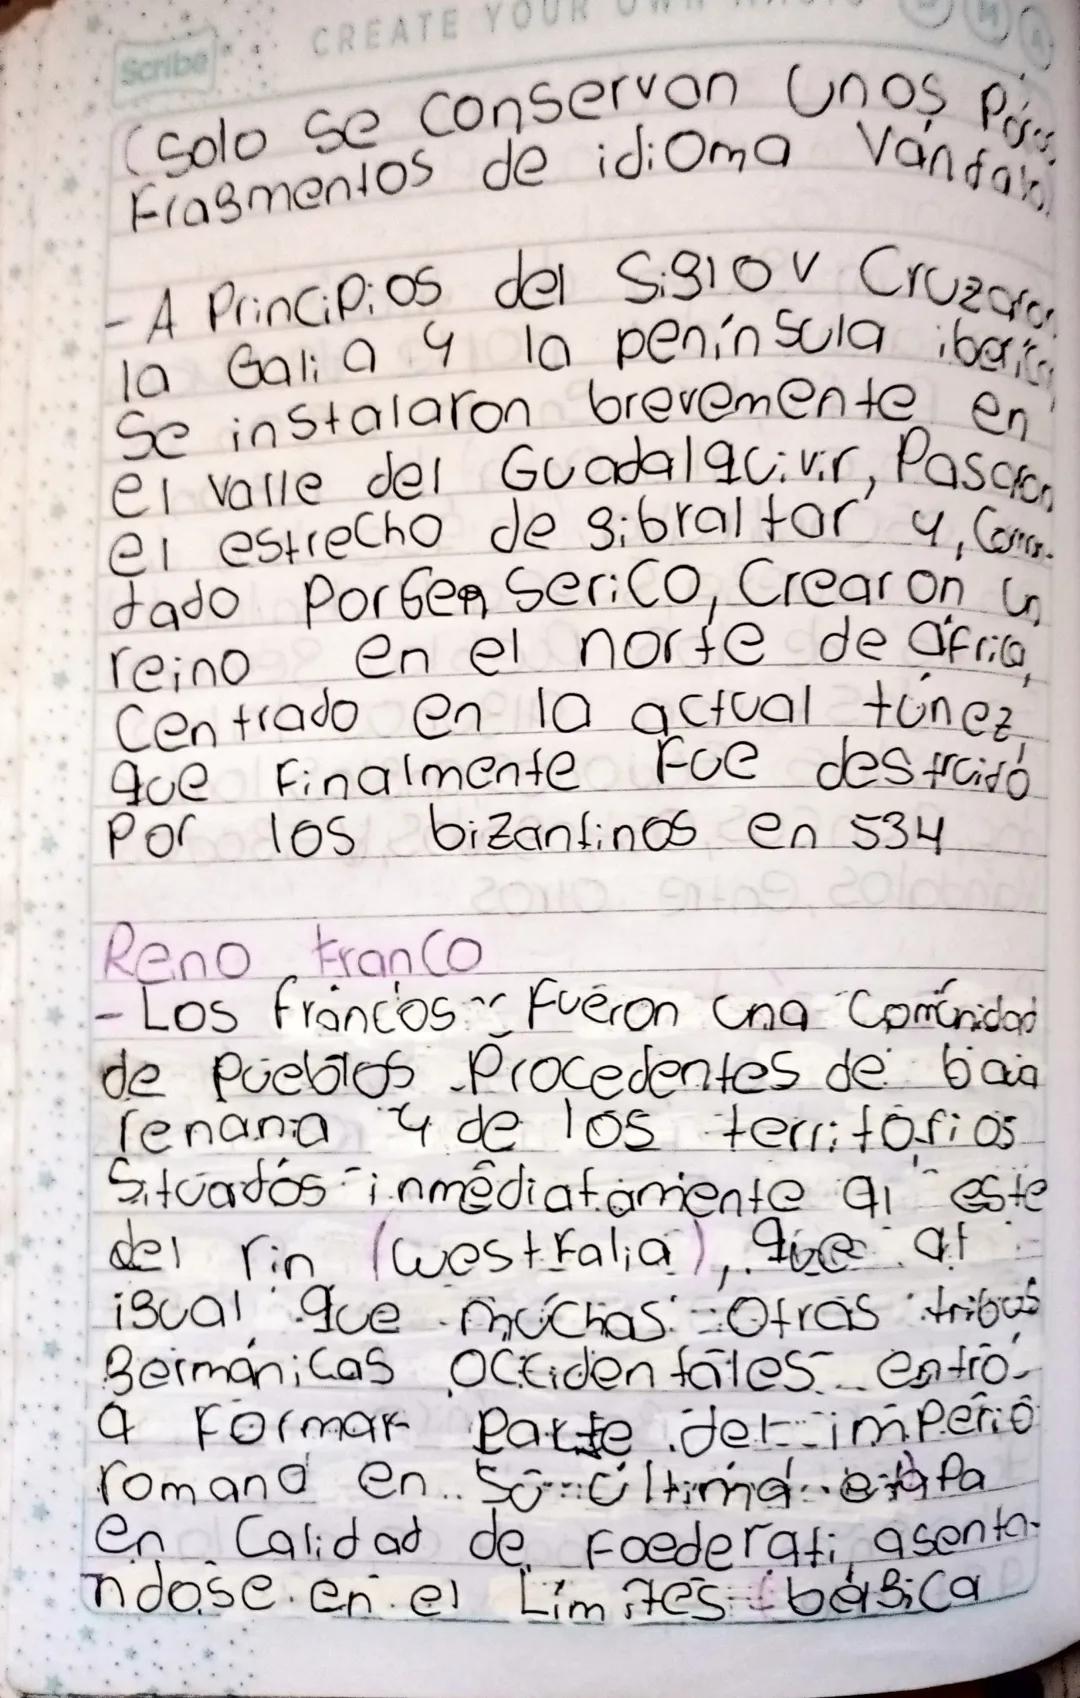 Scribe
CREATE YOUR OWN MAGIC
(Solo se conservan unos pocos
Fragmentos de idioma Vándalo)
- A PrinciPios del Siglo V Cruzaron
la Galia y la península iberica
Se instalaron brevemente en
el valle del Guadalquivir, Pasaron
el estrecho de gibraltar y, Coman-
dado Por Genserico, Crearon un
reino en el norte de áfrica,
Centrado en la actual túnez
que Finalmente Fue destruido
Por los bizantinos en 534
Reno Franco
- Los francos Fueron una Comunidad
de Pueblos Procedentes de baja
renania y de los territorios
Situados inmediatamente al este
del rin (westFalia), que al
igual que muchas otras tribus
Germánicas occidentales entró
a Formar parte del imperio
romano en su última etapa
en Calidad de Foederati, asenta-
ndose en el Limites (bélgica